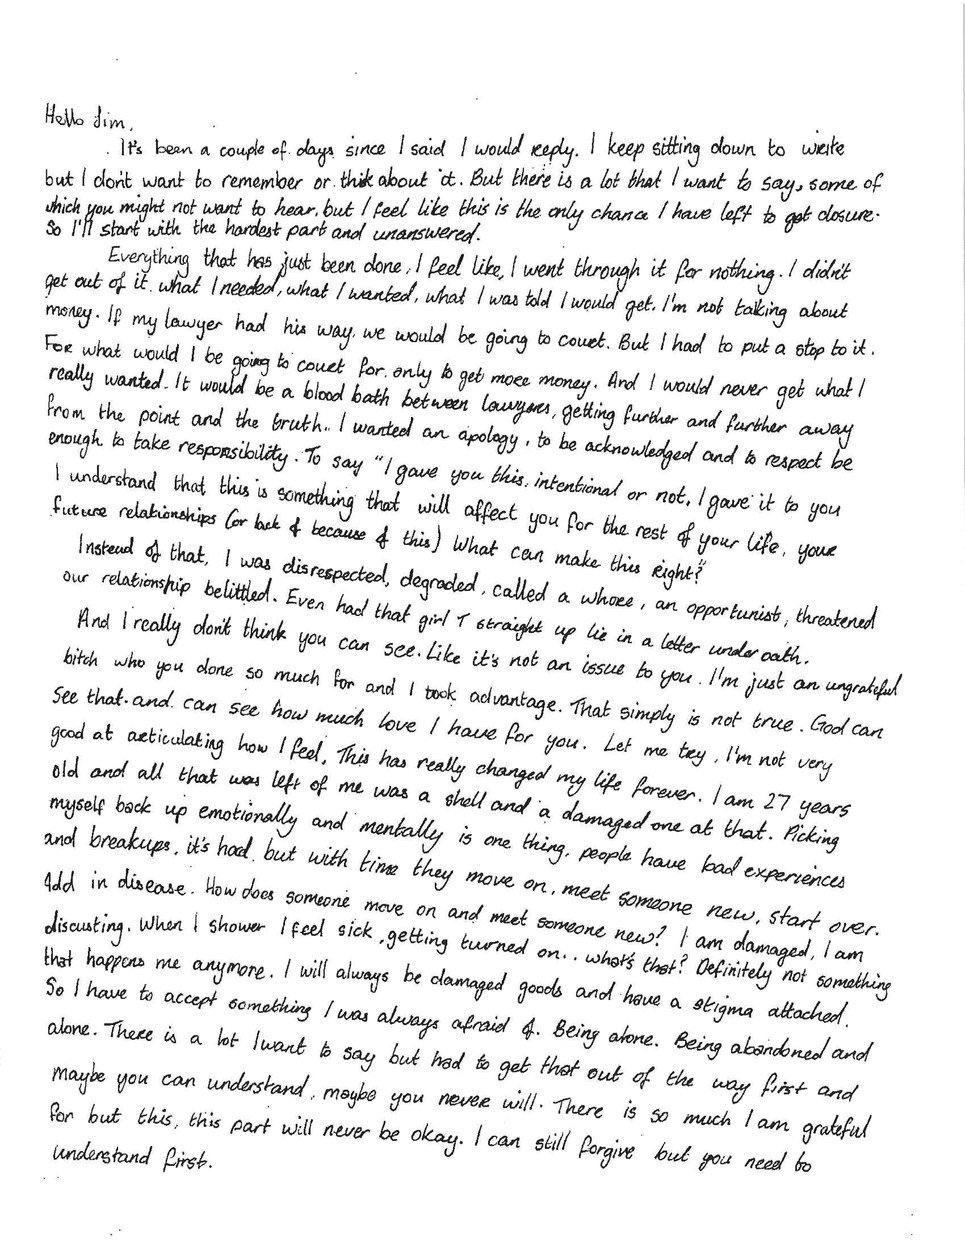 Hello Jim,
. It's been a couple of days since I said I would reply. I keep sitting down to write
but I don't want to remember or think about it. But there is a lot that I want to say, some of
which you might not want to hear, but I feel like this is the only chance I have left to get closure.
So I'll start with the hardest part and unanswered.
Everything that has just been done, I feel like, I went through it for nothing. I didn't
get out of it what I needed, what I wanted, what I was told I would get. I'm not talking about
money. If my lawyer had his way, we would be going to court. But I had to put a stop to it.
For what would I be going to court for, only to get more money. And I would never get what I
really wanted. It would be a blood bath between lawyers, getting further and further away
from the point and the truth.. I wanted an apology, to be acknowledged and to respect be
enough to take responsibility. To say "I gave you this, intentional or not, I gave it to you
I understand that this is something that will affect you for the rest of your life, your
future relationships (or lack of because of this) What can make this right?"
Instead of that, I was disrespected, degraded, called a whore, an opportunist, threatened
our relationship belittled. Even had that girl T straight up lie in a letter under oath.
And I really don't think you can see. Like it's not an issue to you. I'm just an ungrateful
bitch who you done so much for and I took advantage. That simply is not true. God can
see that. and can see how much love I have for you. Let me try, I'm not very
good at articulating how I feel, This has really changed my life forever. I am 27 years
old and all that was left of me was a shell and a damaged one at that. Picking
myself back up emotionally and mentally is one thing, people have bad experiences
and breakups, it's hard, but with time they move on, meet someone new, start over.
Add in disease. How does someone move on and meet someone new? I am damaged, I am
discusting. When I shower I feel sick, getting turned on.. what's that? Definitely not something
that happens me anymore. I will always be damaged goods and have a stigma attached.
So I have to accept something I was always afraid of. Being alone. Being abandoned and
alone. There is a lot I want to say but had to get that out of the way first and
maybe you can understand, maybe you never will. There is so much I am grateful
for but this, this part will never be okay. I can still forgive but you need to
understand first.